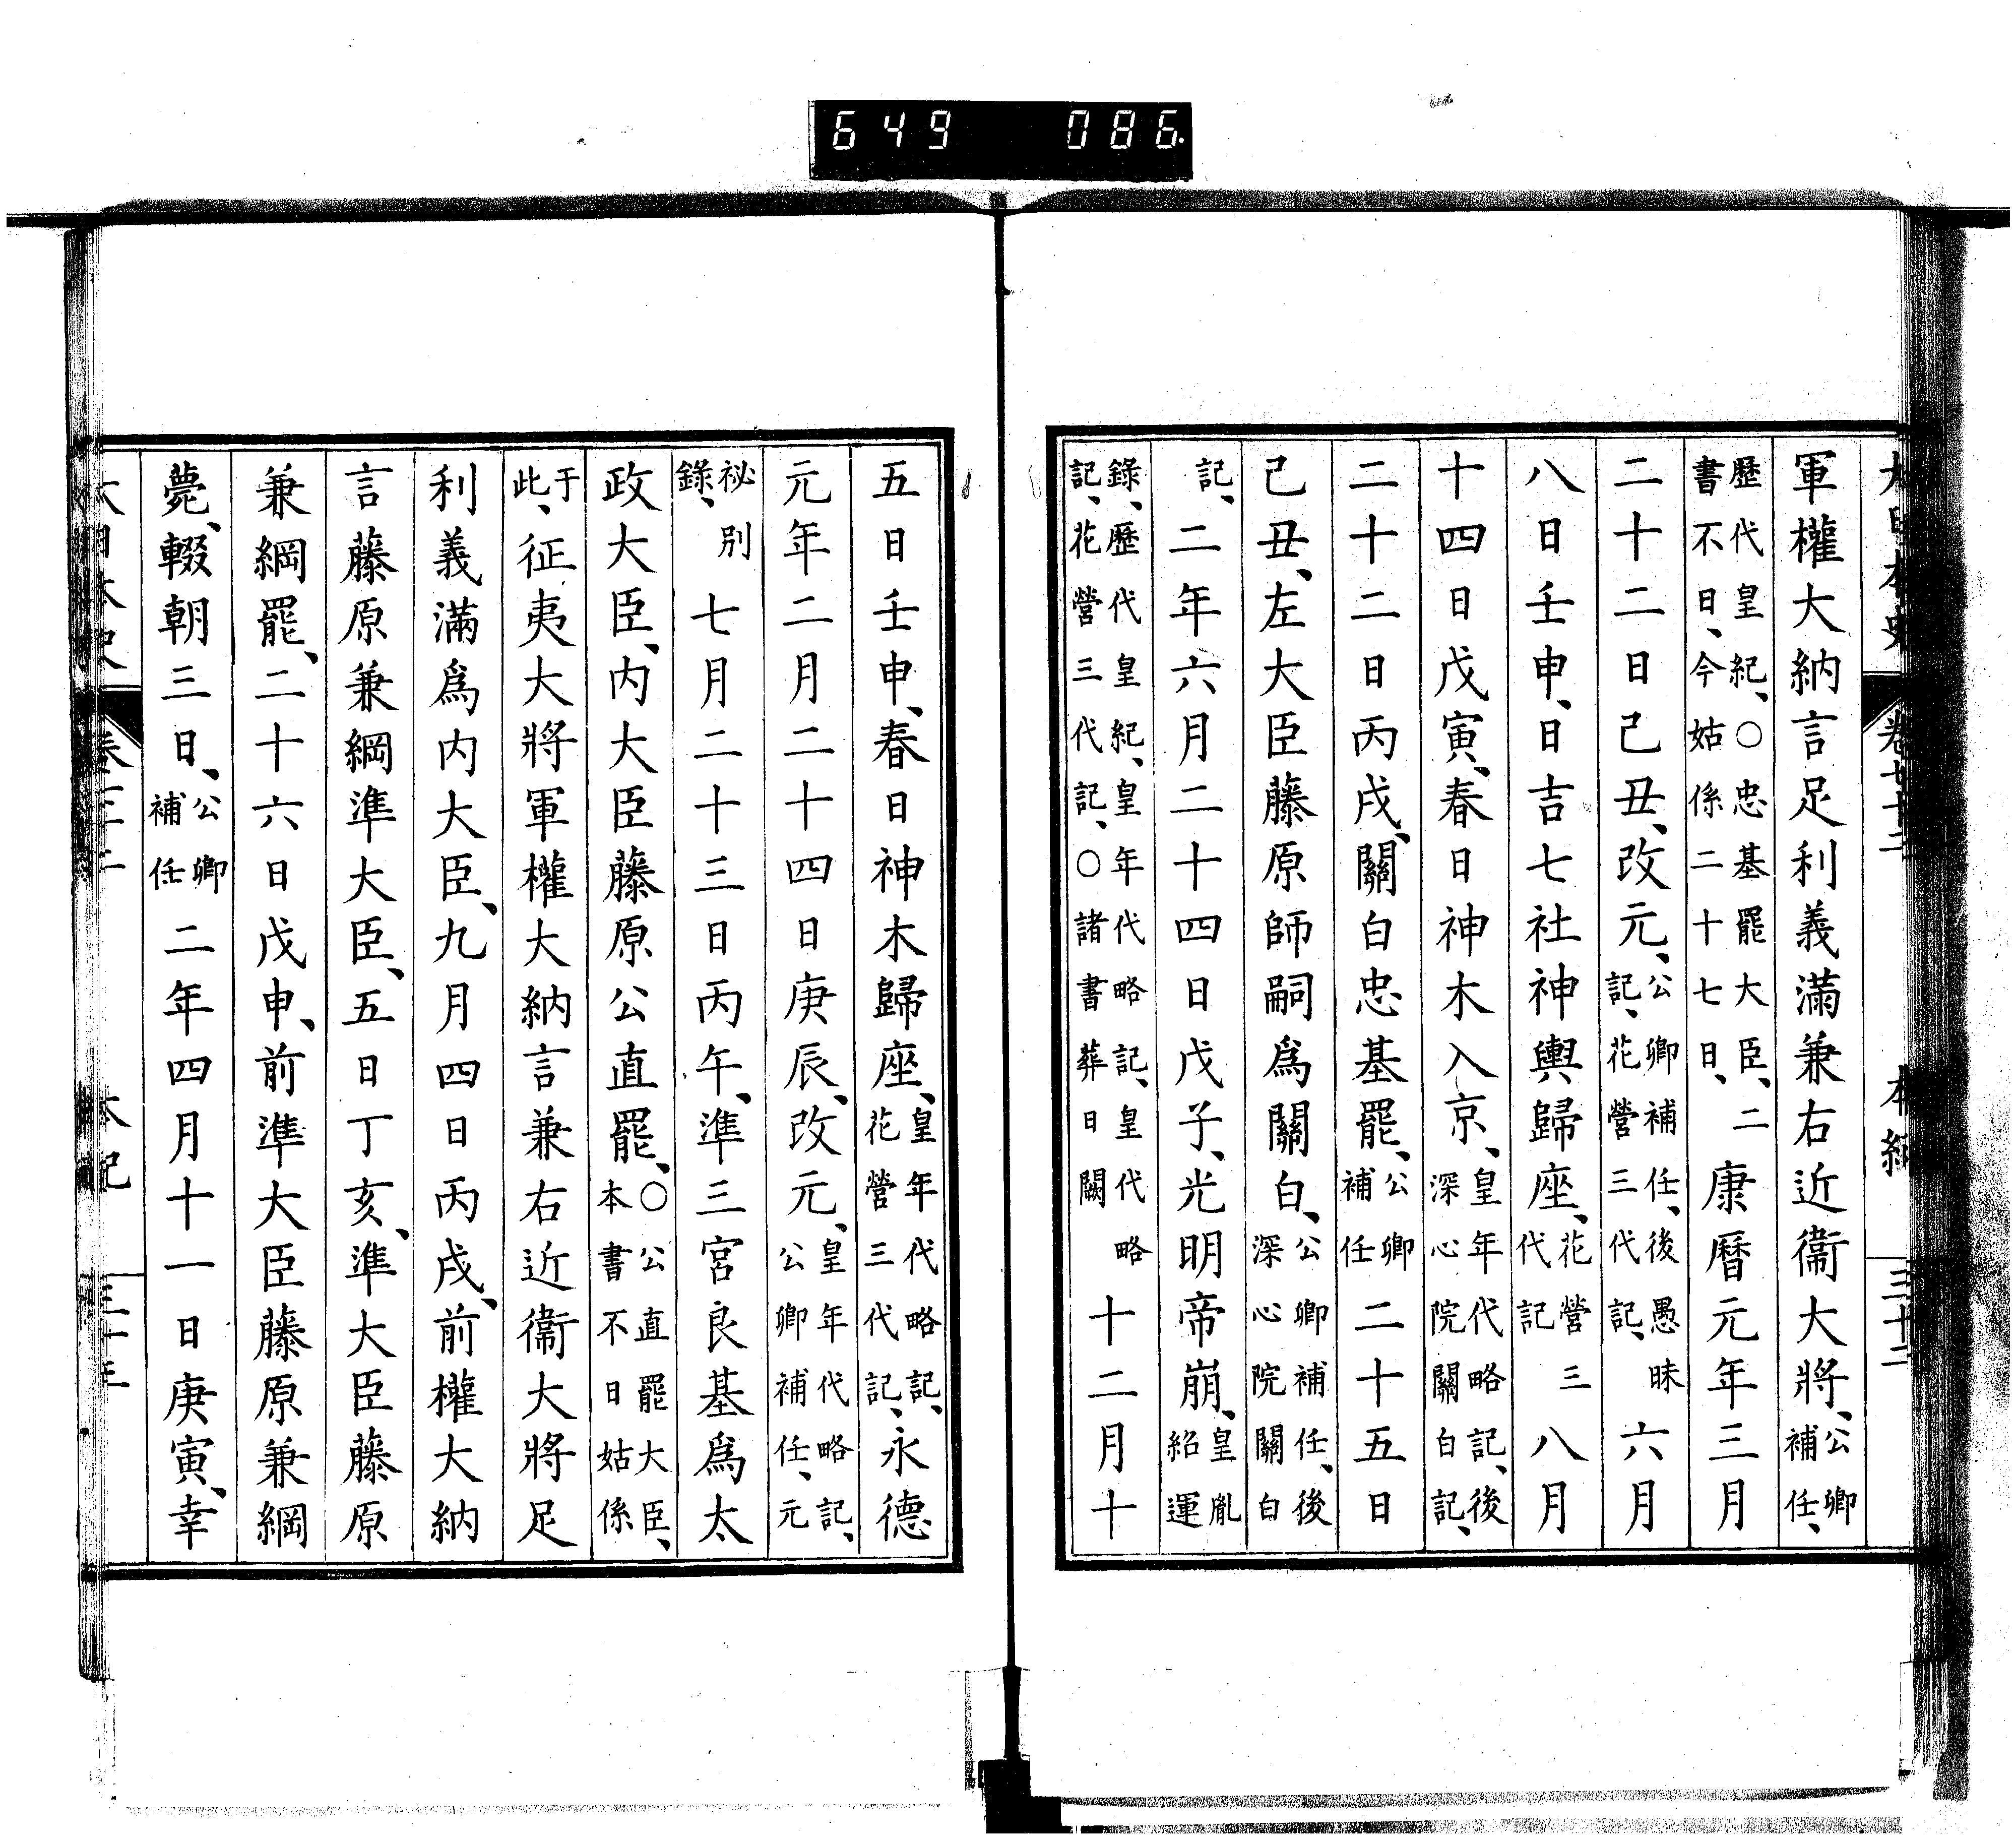 649 086.
軍權大納言足利義滿兼右近衞大將、公卿補任、
歷代皇紀、○忠基罷大臣、二書不日、今姑係二十七日、康曆元年三月
二十二日己丑、改元、公卿補任、後愚昧記、花營三代記、六月
八日壬申、日吉七社神輿歸座、花營三代記八月
十四日戊寅、春日神木入京、皇年代略記、後深心院關白記、
二十二日丙戌、關白忠基罷、公卿補任二十五日
己丑、左大臣藤原師嗣爲關白、公卿補任、後深心院關白
記、二年六月二十四日戊子、光明帝崩、皇胤紹運
錄、歷代皇紀、皇年代略記、皇代略記、花營三代記、○諸書葬日闕十二月十
五日壬申、春日神木歸座、皇年代略記、花營三代記、永德
元年二月二十四日庚辰、改元、皇年代略記、公卿補任、元
祕別錄、七月二十三日丙午、準三宮良基爲太
政大臣、内大臣藤原公直罷、○公直罷大臣、本書不日姑係
于此、征夷大將軍權大納言兼右近衞大將足
利義滿爲内大臣、九月四日丙戌、前權大納
言藤原兼綱準大臣、五日丁亥、準大臣藤原
兼綱罷、二十六日戊申、前準大臣藤原兼綱
薨、輟朝三日、公卿補任二年四月十一日庚寅、幸